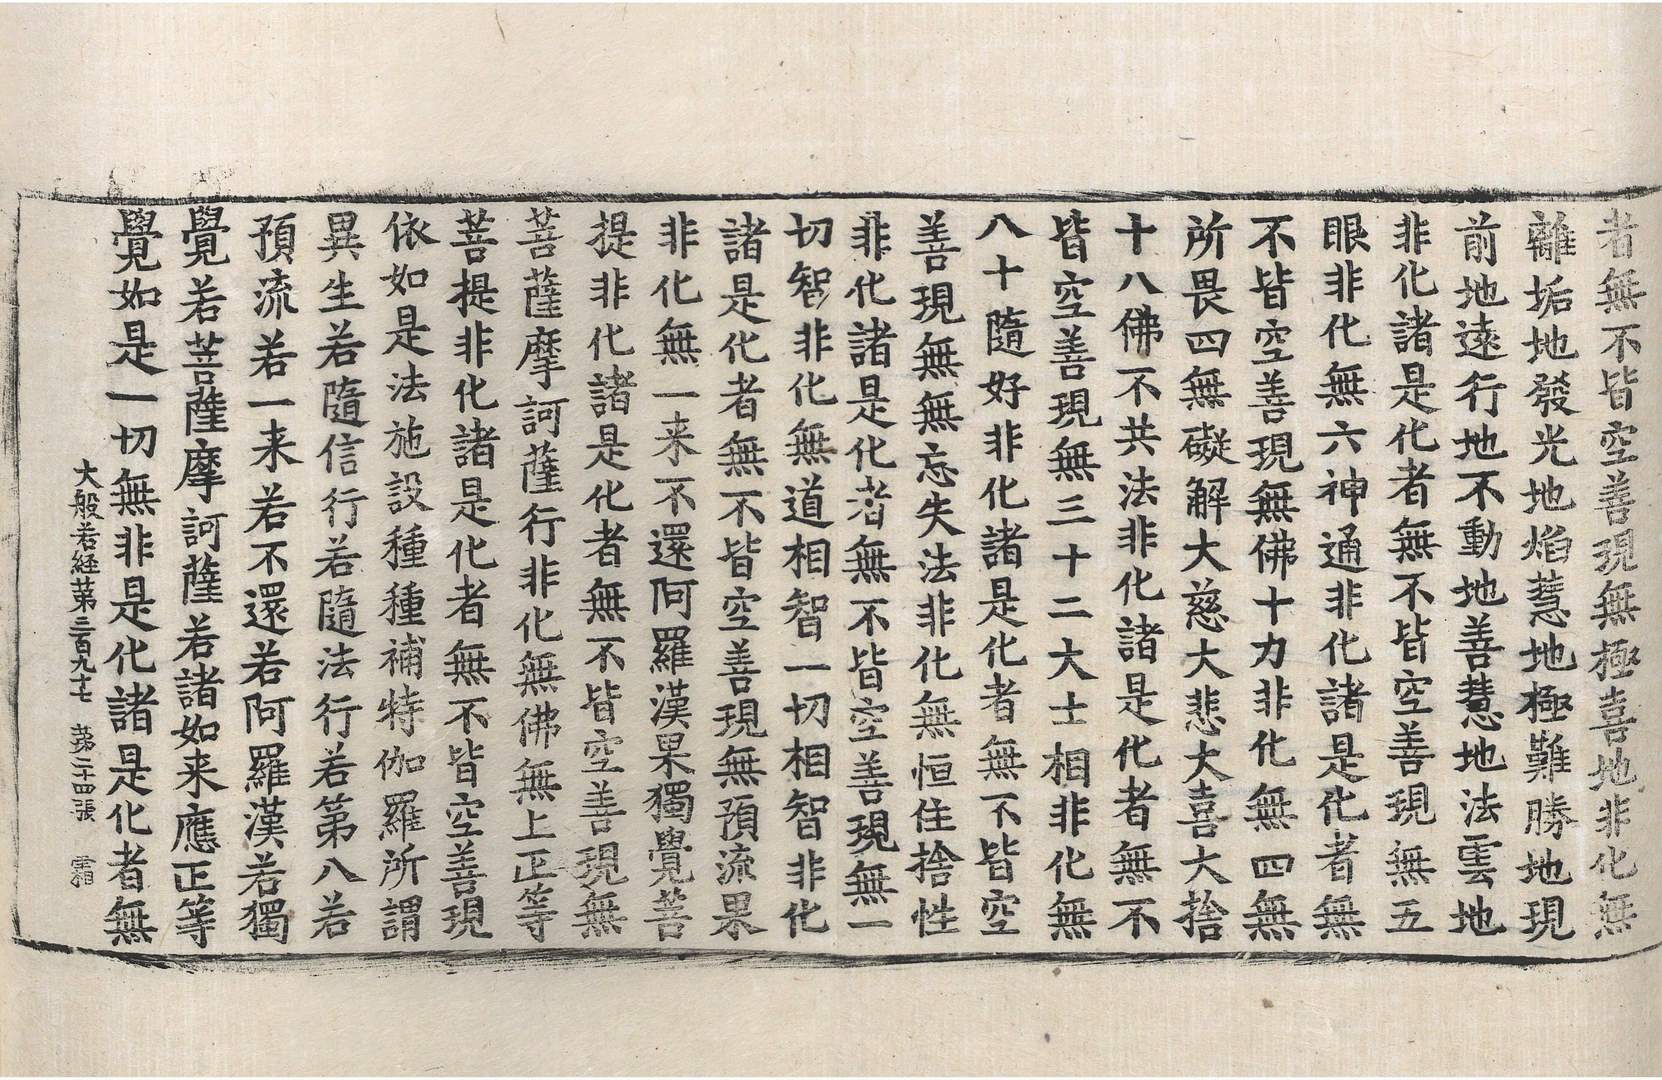 者無不皆空善現無極喜地非化無
離垢地發光地焰慧地極難勝地現
前地遠行地不動地善慧地法雲地
非化諸是化者無不皆空善現無五
眼非化無六神通非化諸是化者無
不皆空善現無佛十力非化無四無
所畏四無礙解大慈大悲大喜大捨
十八佛不共法非化諸是化者無不
皆空善現無三十二大士相非化無
八十隨好非化諸是化者無不皆空
善現無無忘失法非化無恒住捨性
非化諸是化者無不皆空善現無一
切智非化無道相智一切相智非化
諸是化者無不皆空善現無預流果
非化無一来不還阿羅漢果獨覺菩
提非化諸是化者無不皆空善現無
菩薩摩訶薩行非化無佛無上正等
菩提非化諸是化者無不皆空善現
依如是法施設種種補特伽羅所謂
異生若隨信行若隨法行若第八若
預流若一来若不還若阿羅漢若獨
覺若菩薩摩訶薩若諸如来應正等
覺如是一切無非是化諸是化者無
大般若経第三百九十七 第二十四張 霜